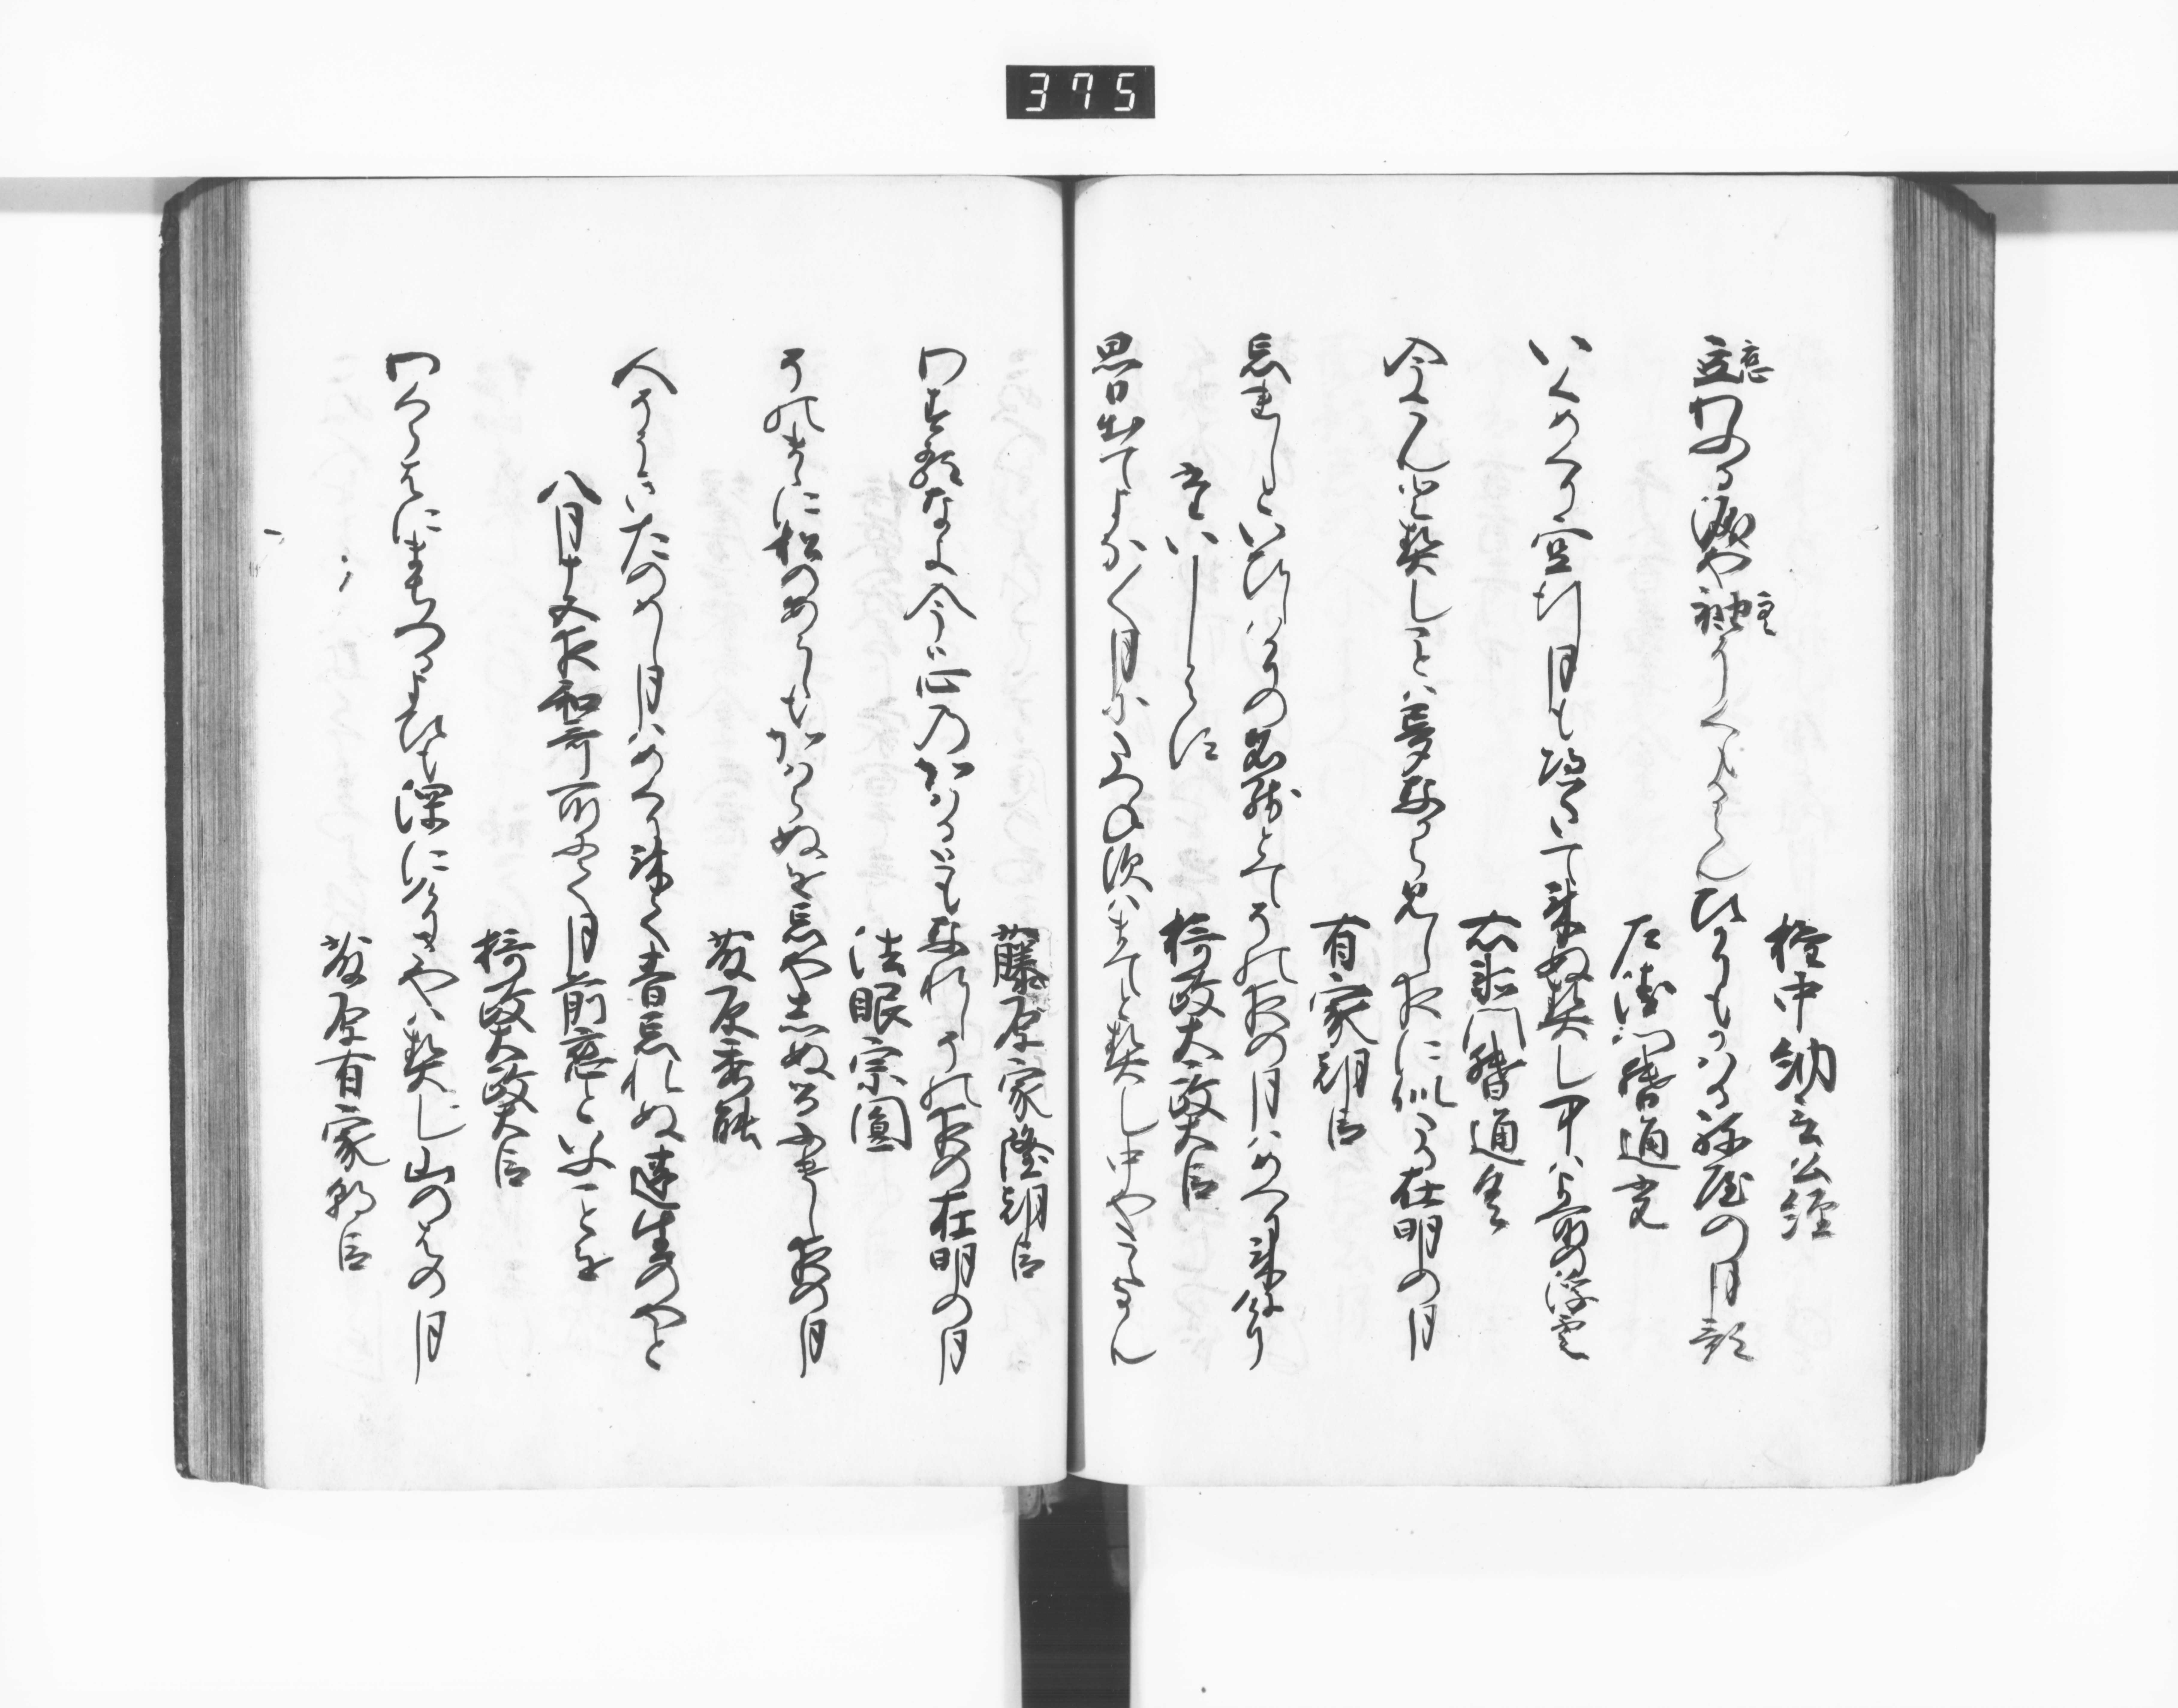 375
権中納言公経
恋わふる涙や袖
立 主
左衛門督通光
いくめくり空行月も隔てゝ来ぬ契し中はよその浮雲
右衛門督通具
今こんと契しことは夢なから見し夜に似たる在明の月
有家朝臣
忘れしといひしはかりの名残とてその夜の月はめくり来にけり
題しらす
摂政太政大臣
思出てよな〱月に尋すはまてと契し中やたえなん
藤原家隆朝臣
わするなよ今は心のかはるともなれしその夜の在明の月
法眼宗圓
そのまゝに松のあらしもかはらぬを忘やしぬるふけし夜の月
藤原秀能
人そうきたのめし月はめくり来て昔忘れぬ蓬生のやと
八月十五夜和哥所にて月前恋といふことを
摂政太政大臣
わくらはにまちつるよひも深にけりさやは契し山のはの月
藤原有家朝臣